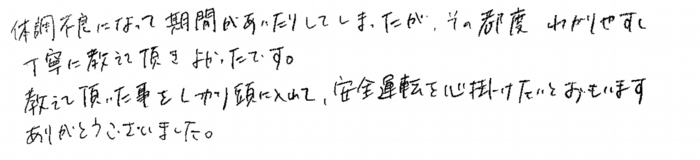 体調不良になって期間があいたりしてしまったが、その都度 わかりやすく
丁寧に教えて頂きよかったです。
教えて頂いた事をしっかり頭に入れて、安全運転を心掛けたいとおもいます
ありがとうございました。